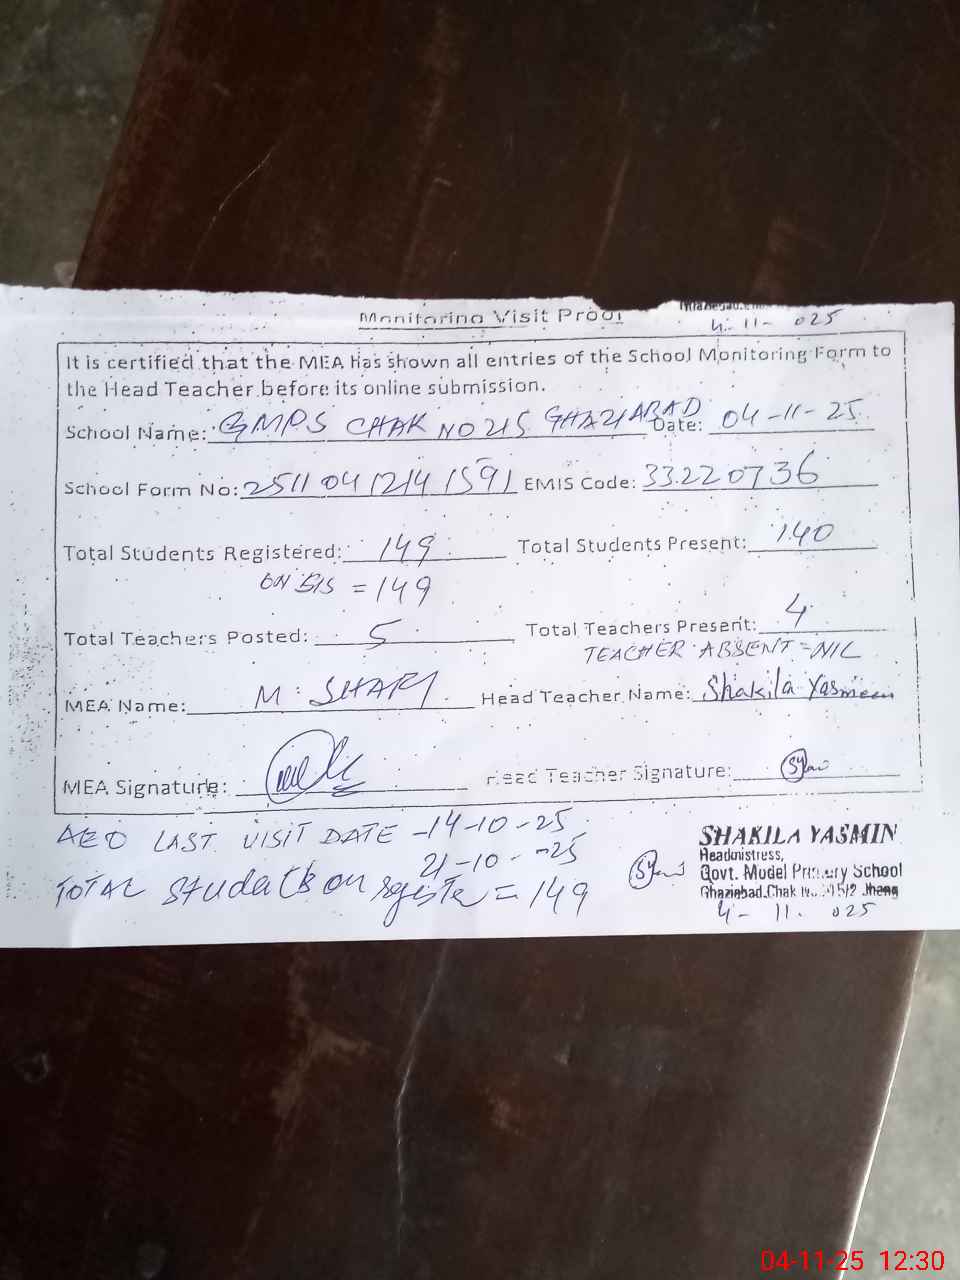 Monitoring Visit Proof
4-11-025
It is certified that the MEA has shown all entries of the School Monitoring Form to
the Head Teacher before its online submission.
School Name: GMPS CHAK NO 215 GHAZIABAD Date: 04-11-25
School Form No: 25110412141591 EMIS Code: 33220736
Total Students Registered: 149 Total Students Present: 140
ON SIS = 149
Total Teachers Posted: 5 Total Teachers Present: 4
TEACHER ABSENT = NIL
MEA Name: M. Head Teacher Name: Shakila Yasmeen
MEA Signature: Head Teacher Signature:
AEO LAST VISIT DATE -14-10-25
21-10-25
TOTAL Students on register = 149
SHAKILA YASMIN
Headmistress,
Govt. Model Primary School
Ghaziabad Chak Jhang
4-11-025
04-11-25 12:30